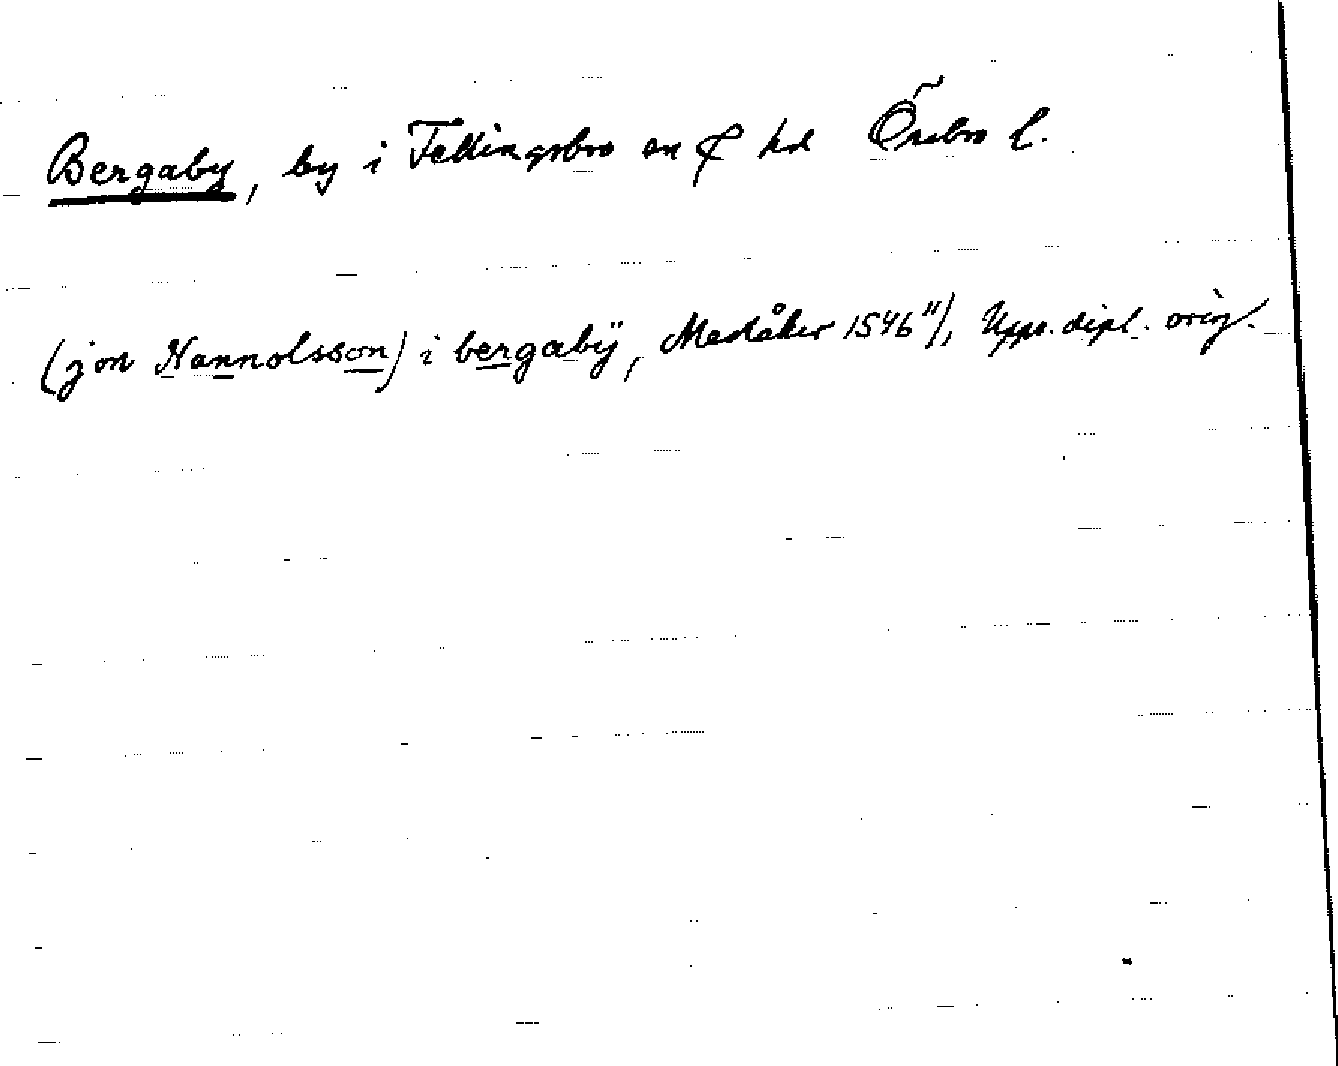 Bergaby, by i Fellingsbro sn & hd Örebro l.
(jon Nannolsson) i bergabÿ, Medåker 1546 11/1, Upps. dipl. orig.